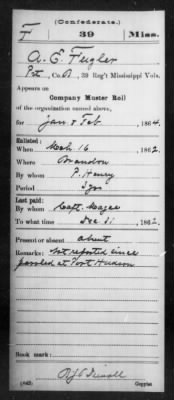 (Confederate.)
F 39 Miss.
A. E. Fugler
Pvt, Co. A, 39 Reg't Mississippi Vols.
Appears on
Company Muster Roll
of the organization named above,
for Jan & Feb, 1864.
Enlisted:
When Mch 16, 1862.
Where Brandon
By whom P. Henry
Period 3 yrs
Last paid:
By whom Capt. Magee
To what time Dec 31, 1862.
Present or absent absent
Remarks: Not reported since
paroled at Port Hudson
Book mark:
(642) Copyist.